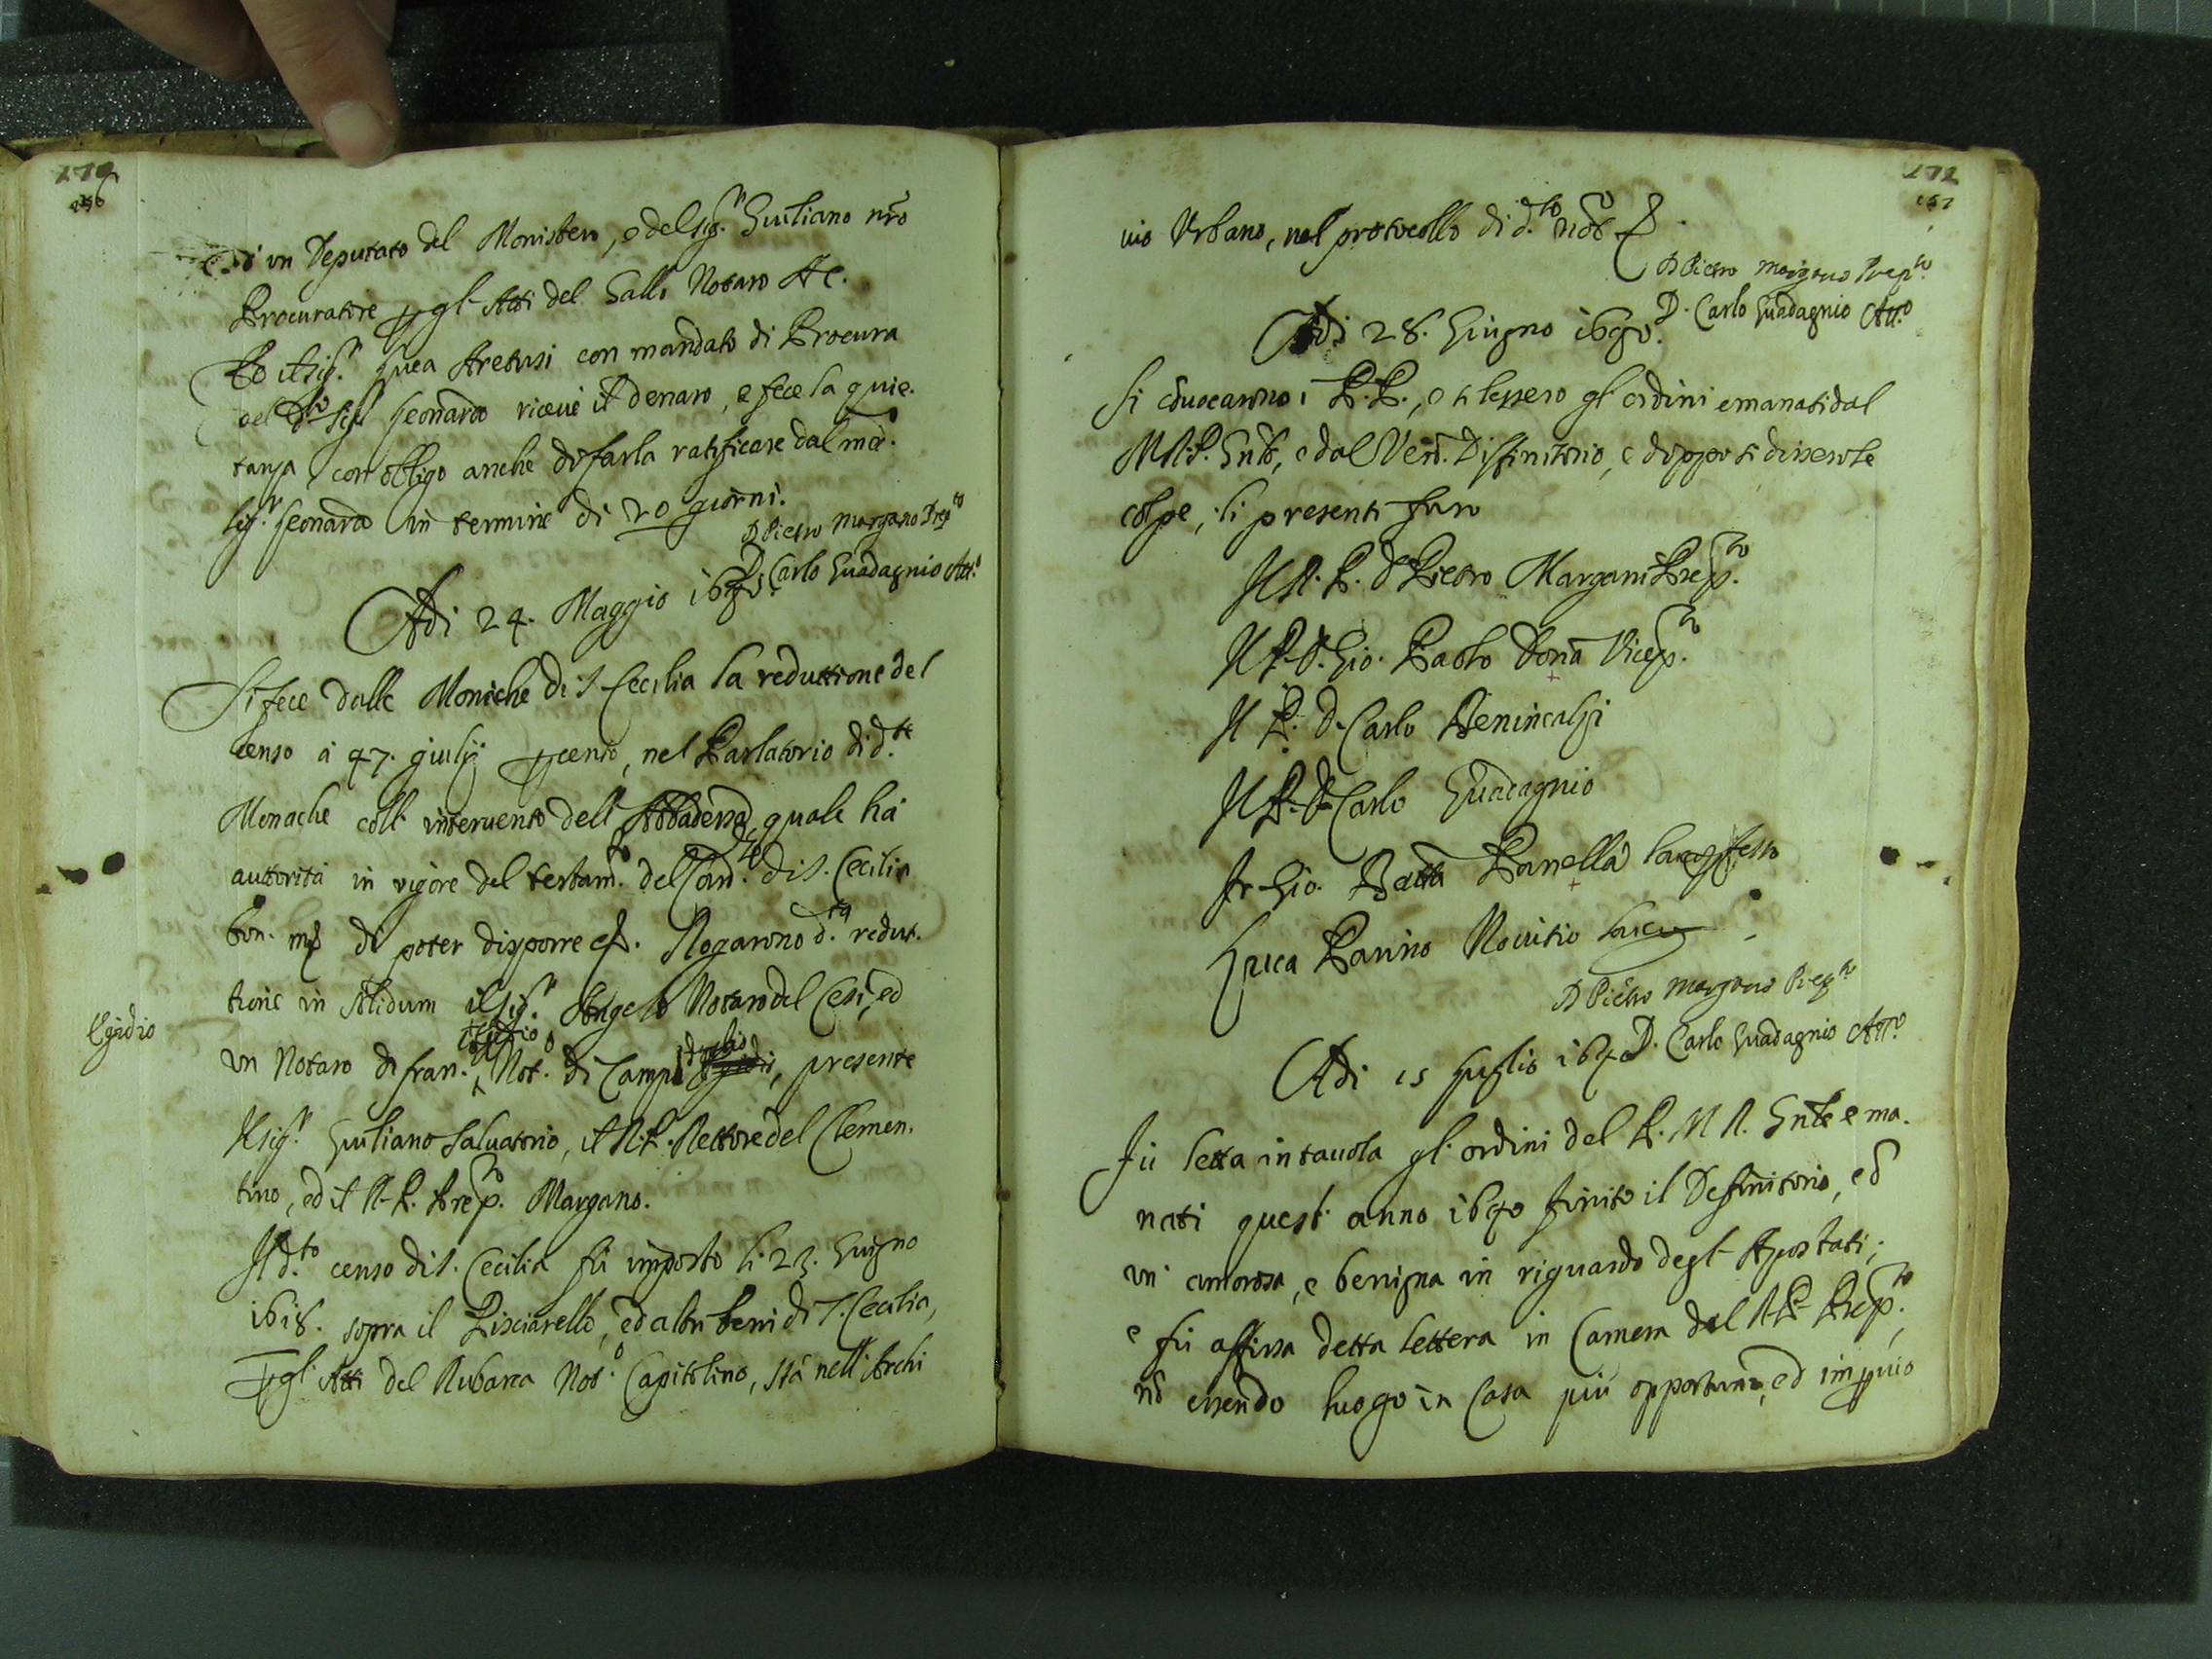 e di vn Deputato del Monistero, e del sig.r Giuliano nro
Procuratore p gl' Atti del Gallo Notaro A.C.
Po il sig.r Luca Aretusi con mandato di Procura
del d.to sig.r Leonardo riceuè il denaro, e fece la quie.
tanza con obligo anche di farla ratificare dal med.o
sig.r Leonardo in termine di 20 giorni.
D Pietro Margano Prep.to
D. Carlo Guadagnio Att.o
Adi 24. Maggio 1690.
Si fece dalle Moniche di S. Cecilia la reduttione del
censo à 47. giulij p cento, nel Parlatorio di d.te
Monache coll' interuento dell' Abbadessa, quale hà
auttorità in vigore del testam.to del Car.le di S. Cecilia
bon. me di poter disporre &. Rogarono d.ta redut.
tione in solidum il sig.r Angelo Notaro del Cesi, ed
Egidio
vn Notaro di fran.o Not.o di Campidoglio, presente
Il sig.r Giuliano Saluatorio, il R.P. Rettore del Clemen.
tino, ed il R. P. Prep.to Margano.
Il d.to censo di S. Cecilia fù imposto li 23. Giugno
1618. sopra il Pisciarello, ed altri beni di S. Cecilia,
p gl' Atti del Rubarca Not.o Capitolino, stà nell' Archi
uio Vrbano, nel protocollo di d.to not.o &.
D Pietro Margano Prep.to
D. Carlo Guadagnio Att.o
Adi 28. Giugno 1690.
Si cōuocarono i P.P., e si lessero gl' ordini emanati dal
M.R.P. Gn̄le, e dal Ven. Diffinitorio, e doppo si dissero le
colpe, li presenti furo
Il R. P. D. Pietro Margani Prep.to
Il P. D. Gio. Paolo Donà Vicep.to
Il P. D. Carlo Benincalzi
Il P. D. Carlo Guadagnio
Fr. Gio. Batta Panella laico pfesso
Luca Panno Nouitio laico
D Pietro Margano Prep.to
D. Carlo Guadagnio Att.o
Adi 15 Luglio 1690
Fù letta in tauola gl' ordini del P. M. R. Gn̄le ema.
nati quest' anno 1690 finito il Definitorio, ed
vn' amorosa, e benigna in riguardo degl' Apostati;
e fù affissa detta lettera in Camera del R. P. Prep.to,
nō essendo luogo in Casa più opportuno, ed in puio